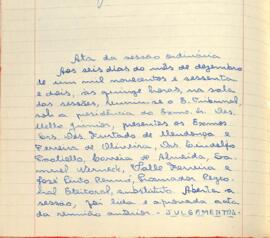 Ata da sessão ordinária
Aos seis dias do mês de dezembro
de um mil novecentos e sessenta
e dois, às quinze horas, na sala
das sessões, reuniu-se o E. Tribunal,
sob a presidência do Exmo. Sr. Des.
Mello Júnior, presentes os Exmos.
Srs. Des. Furtado de Mendonça e
Ferreira de Oliveira, Drs. Lindolfo
Paoliello, Correia de Almeida,
Werneck, Valle Ferreira e
José Pinto Renó, Procurador Regio-
nal Eleitoral, substituto. Aberta a
sessão, foi lida e aprovada a ata
da reunião anterior. - JULGAMENTOS.